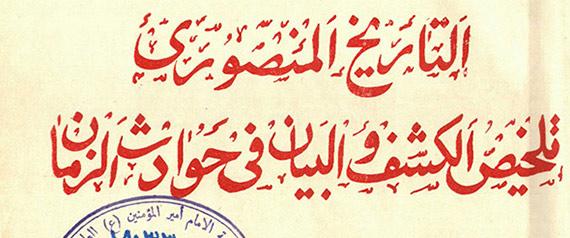 التاريخ المنصوري
تلخيص الكشف والبيان في حوادث الزمان
الامام أمير المؤمنين (ع)